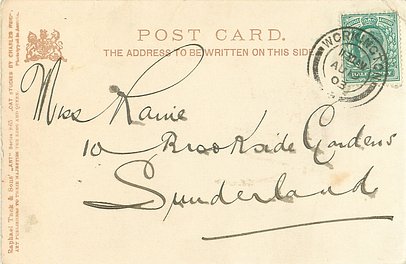 POST CARD.
THE ADDRESS TO BE WRITTEN ON THIS SIDE
WORKINGTON
AU
03
HALF
Miss Raine
10 Brookside Gardens
Sunderland
Raphael Tuck & Sons' "ART" Series
CAT STUDIES BY CHARLES REID.
ART PUBLISHERS TO THEIR MAJESTIES THE KING AND QUEEN.